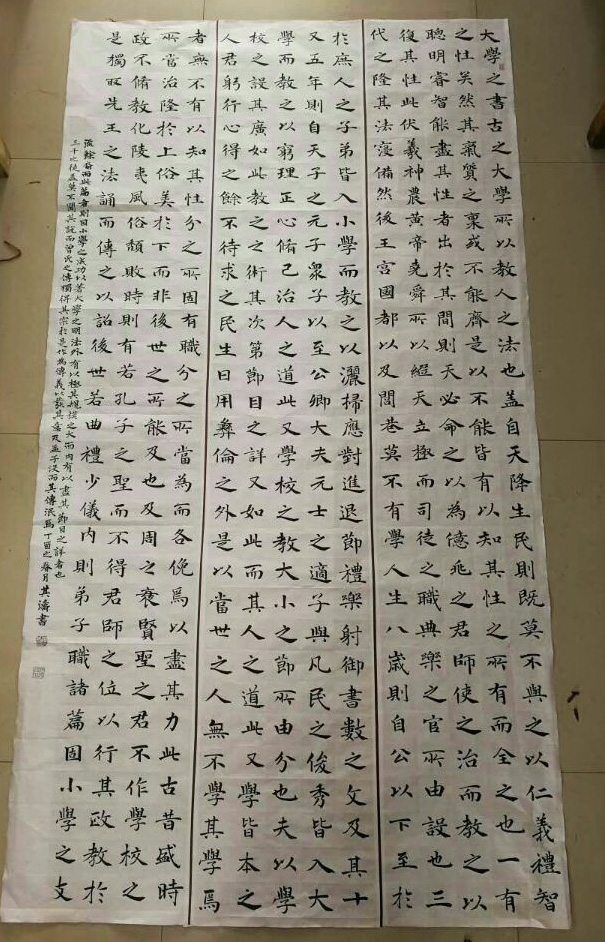 大學之書古之大學所以教人之法也蓋自天降生民則既莫不與之以仁義禮智
之性矣然其氣質之稟或不能齊是以不能皆有以知其性之所有而全之也一有
聰明睿智能盡其性者出於其間則天必命之以為億兆之君師使之治而教之以
復其性此伏羲神農黃帝堯舜所以繼天立極而司徒之職典樂之官所由設也三
代之隆其法寖備然後王宮國都以及閭巷莫不有學人生八歲則自公以下至於
於庶人之子弟皆入小學而教之以灑掃應對進退節禮樂射御書數之文及其十
又五年則自天子之元子眾子以至公卿大夫元士之適子與凡民之俊秀皆入大
學而教之以窮理正心脩己治人之道此又學校之教大小之節所由分也夫以學
校之設其廣如此教之之術其次第節目之詳又如此而其人之道此又學皆本之
人君躬行心得之餘不待求之民生日用彝倫之外是以當世之人無不學其學焉
者無不有以知其性分之所固有職分之所當為而各俛焉以盡其力此古昔盛時
所當治隆於上俗美於下而非後世之所能及也及周之衰賢聖之君不作學校之
政不脩教化陵夷風俗頹敗時則有若孔子之聖而不得君師之位以行其政教於
是獨取先王之法誦而傳之以詔後世若曲禮少儀內則弟子職諸篇固小學之支
流餘裔而此篇者則因小學之成功以著大學之明法外有以極其規模之大而內有以盡其節目之詳者也
三千之徒蓋莫不聞其說而曾氏之傳獨得其宗於是作為傳義以發其意及孟子沒而其傳泯焉丁酉之春月其濤書